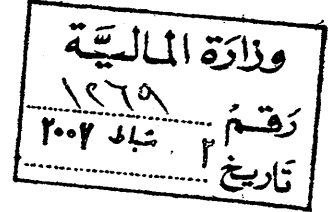 وزارة المالية
رقم ١٢٦٩
تاريخ ٢ شباط ٢٠٠٧